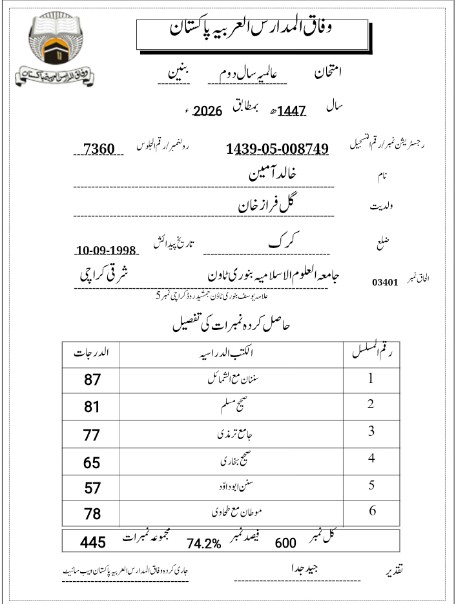 وفاق المدارس العربیہ پاکستان
امتحان عالمیہ سال دوم بنین
سال 1447ھ بمطابق 2026ء
رجسٹریشن نمبر/رقم التسجیل 1439-05-008749 رولنمبر/رقم الجلوس 7360
نام خالد آمین
ولدیت گل فراز خان
ضلع کرک تاریخ پیدائش 10-09-1998
الحاق نمبر 03401 جامعہ العلوم الاسلامیہ بنوری ٹاون شرقی کراچی
علامہ یوسف بنوری ٹاؤن جمشید روڈ کراچی نمبر 5
حاصل کردہ نمبرات کی تفصیل
رقم المسلسل الکتب الدراسیہ الدرجات
1 سننان مع الشمائل 87
2 صحیح مسلم 81
3 جامع ترمذی 77
4 صحیح بخاری 65
5 سنن ابوداؤد 57
6 موطان مع طحاوی 78
کل نمبر 600 فیصد نمبر 74.2% مجموعہ نمبرات 445
تقدیر جید جدا جاری کردہ وفاق المدارس العربیہ پاکستان ویب سائیٹ